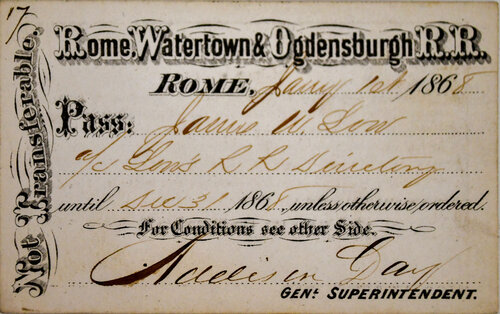 17
Not Transferable.
Rome, Watertown & Ogdensburgh R.R.
ROME, Jany 1st 1868
Pass: James W. Low
a/c Low's R R Directory
until Dec 31 1868, unless otherwise ordered.
For Conditions see other Side.
Addison Day
GENL. SUPERINTENDENT.